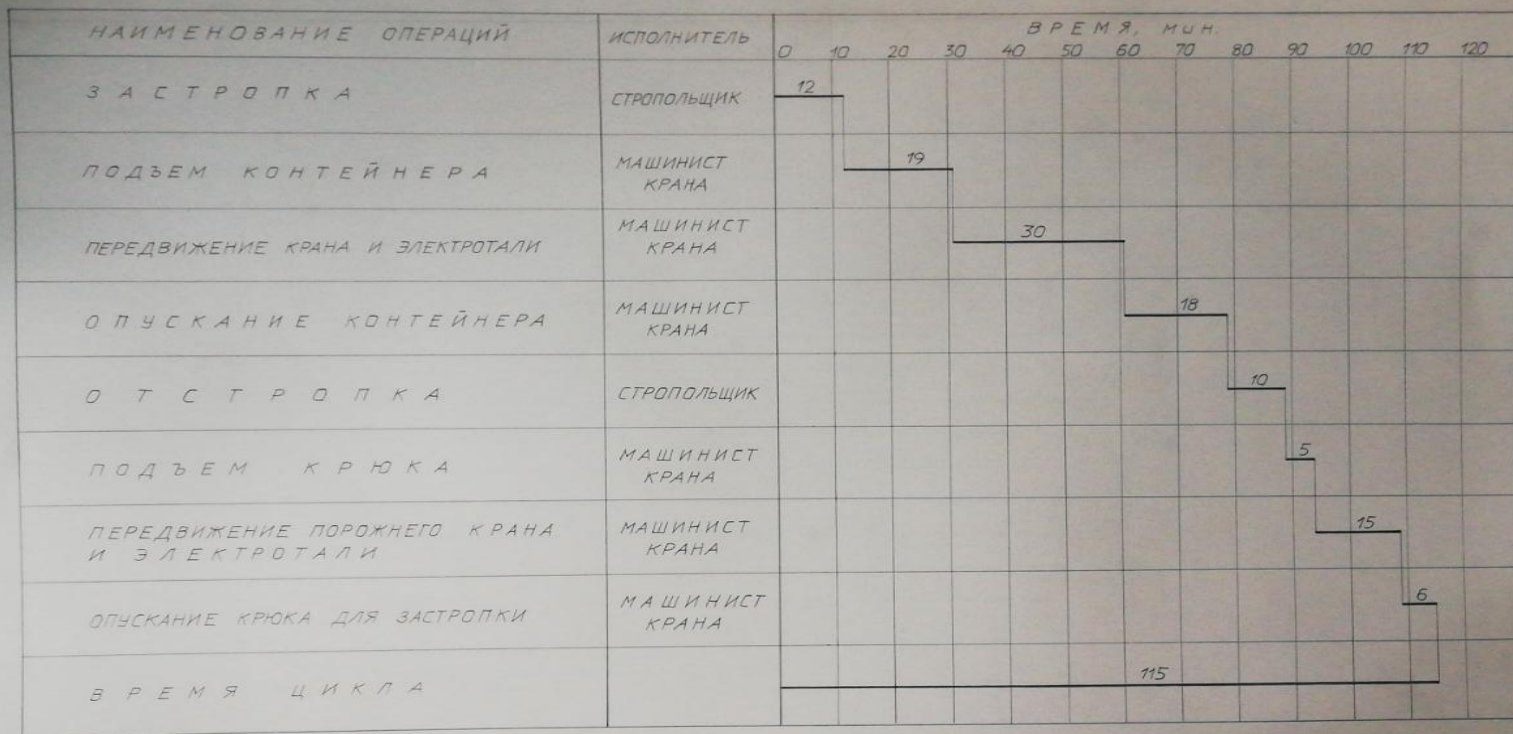 НАИМЕНОВАНИЕ ОПЕРАЦИЙ
ИСПОЛНИТЕЛЬ
ВРЕМЯ, мин.
0 10 20 30 40 50 60 70 80 90 100 110 120
ЗАСТРОПКА
СТРОПОЛЬЩИК
12
ПОДЪЕМ КОНТЕЙНЕРА
МАШИНИСТ
КРАНА
19
ПЕРЕДВИЖЕНИЕ КРАНА И ЭЛЕКТРОТАЛИ
МАШИНИСТ
КРАНА
30
ОПУСКАНИЕ КОНТЕЙНЕРА
МАШИНИСТ
КРАНА
18
ОТСТРОПКА
СТРОПОЛЬЩИК
10
ПОДЪЕМ КРЮКА
МАШИНИСТ
КРАНА
5
ПЕРЕДВИЖЕНИЕ ПОРОЖНЕГО КРАНА
И ЭЛЕКТРОТАЛИ
МАШИНИСТ
КРАНА
15
ОПУСКАНИЕ КРЮКА ДЛЯ ЗАСТРОПКИ
МАШИНИСТ
КРАНА
6
ВРЕМЯ ЦИКЛА
115